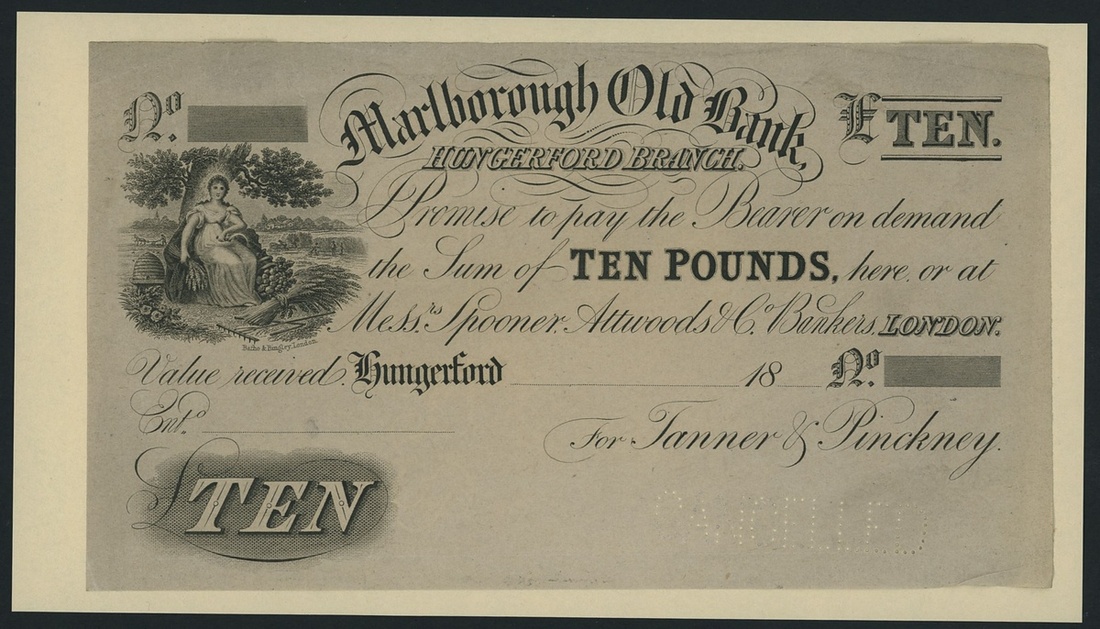 No.
Marlborough Old Bank,
£ TEN.
HUNGERFORD BRANCH.
I Promise to pay the Bearer on demand
the Sum of TEN POUNDS, here, or at
Mess.rs Spooner, Attwoods & Co. Bankers, LONDON.
Bathe & Bingley, London.
Value received. Hungerford 18 No.
Ent.d
For Tanner & Pinckney.
£TEN